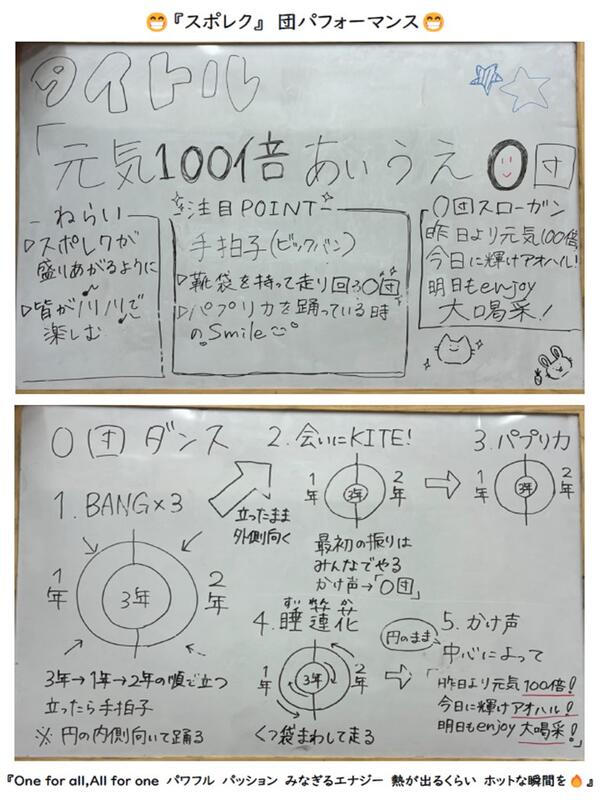 😁『スポレク』 団パフォーマンス😁
タイトル
「元気100倍 あいうえ O団
ねらい
▷スポレクが
盛りあがるように
▷皆がノリノリで
楽しむ
注目POINT
手拍子(ビックバン)
▷靴袋を持って走り回るO団
▷パプリカを踊っている時
のSmile
O団スローガン
昨日より元気100倍
今日に輝けアオハル!
明日もenjoy
大喝采!
O団ダンス
1. BANG×3
1年
3年
2年
3年→1年→2年の順で立つ
立ったら手拍子
※ 円の内側向いて踊る
立ったまま
外側向く
2. 会いにKITE!
1年
3年
2年
最初の振りは
みんなでやる
かけ声→「O団」
3. パプリカ
1年
3年
2年
4. 睡蓮花
ずいれんか
1年
3年
2年
くつ袋まわして走る
円のまま
5. かけ声
中心によって
「昨日より元気100倍!
今日に輝けアオハル!
明日もenjoy 大喝采!」
『One for all,All for one パワフル パッション みなぎるエナジー 熱が出るくらい ホットな瞬間を🔥』